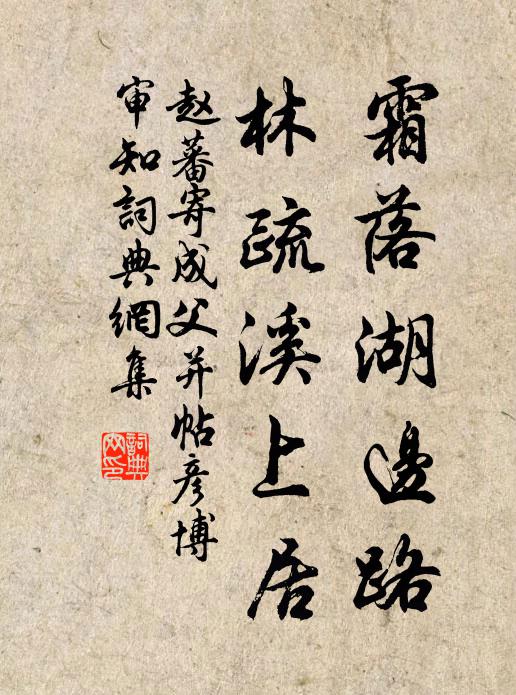 霜落湖邊路
林疏溪上居
赵蕃寄成父并帖彦博
审知詞典網集
詞典网印